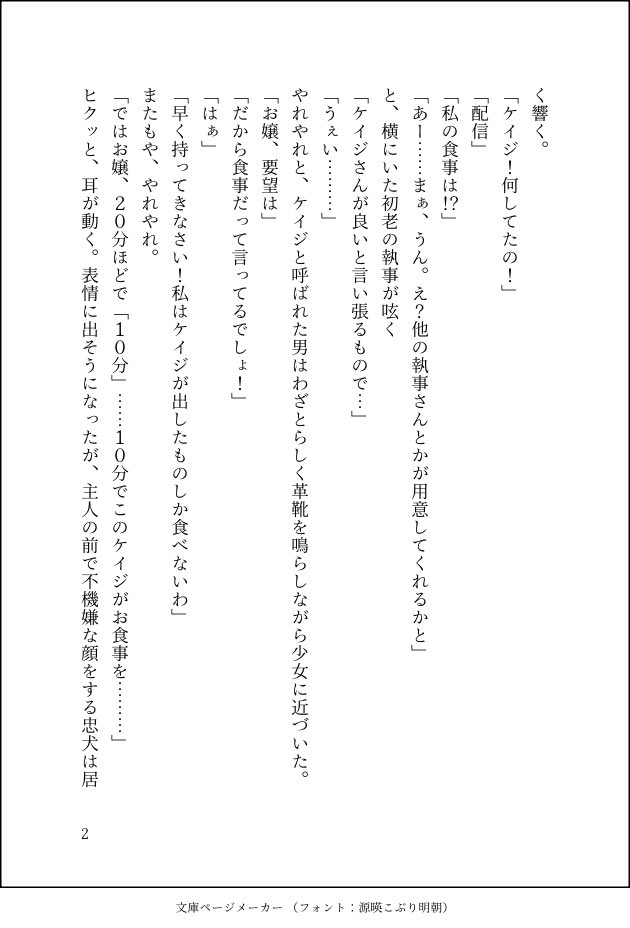 く響く。
「ケイジ！何してたの！」
「配信」
「私の食事は!?」
「あー……まぁ、うん。え？他の執事さんとかが用意してくれるかと」
と、横にいた初老の執事が呟く
「ケイジさんが良いと言い張るもので…」
「うぇい………」
やれやれと、ケイジと呼ばれた男はわざとらしく革靴を鳴らしながら少女に近づいた。
「お嬢、要望は」
「だから食事だって言ってるでしょ！」
「はぁ」
「早く持ってきなさい！私はケイジが出したものしか食べないわ」
またもや、やれやれ。
「ではお嬢、２０分ほどで「１０分」……１０分でこのケイジがお食事を………」
ヒクッと、耳が動く。表情に出そうになったが、主人の前で不機嫌な顔をする忠犬は居
2
文庫ページメーカー（フォント：源暎こぶり明朝）